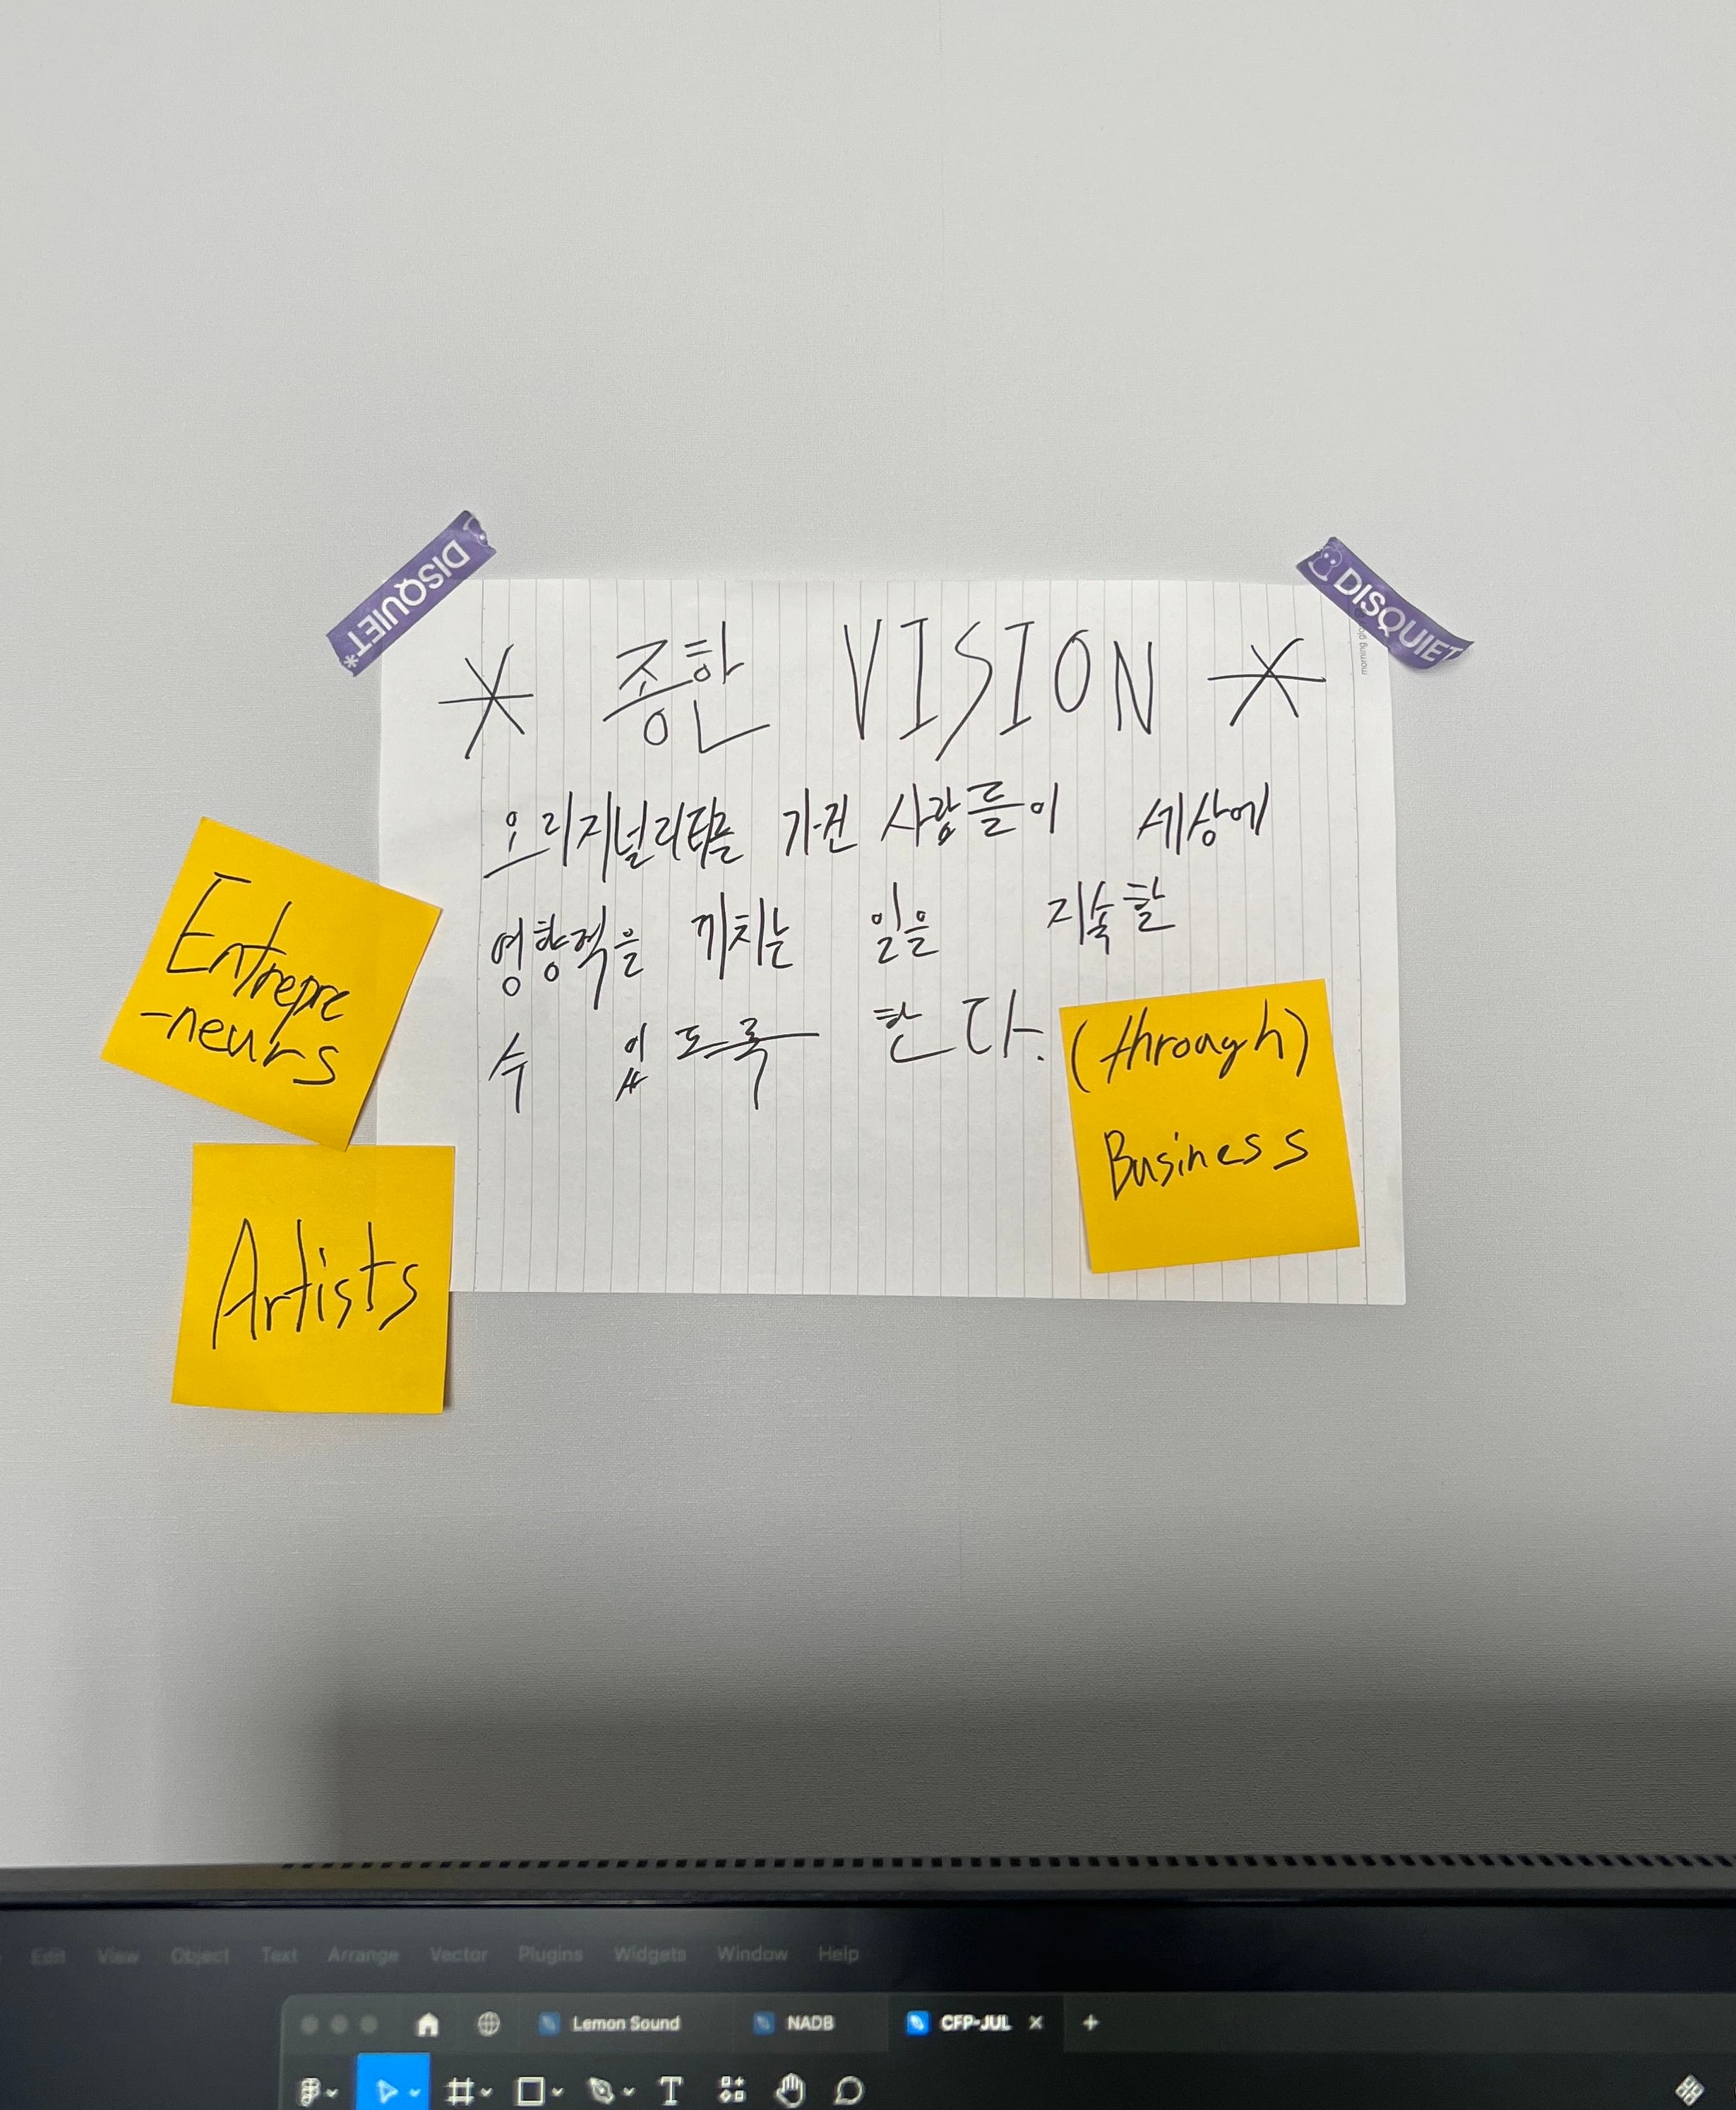 DISQUIET*
DISQUIET
morning glo
* 종한 VISION *
오리지널리티를 가진 사람들이 세상에
영향력을 끼치는 일을 지속할
수 있도록 한다.
(through)
Business
Entrepre
-neurs
Artists
Edit View Object Text Arrange Vector Plugins Widgets Window Help
Lemon Sound NADB CFP-JUL